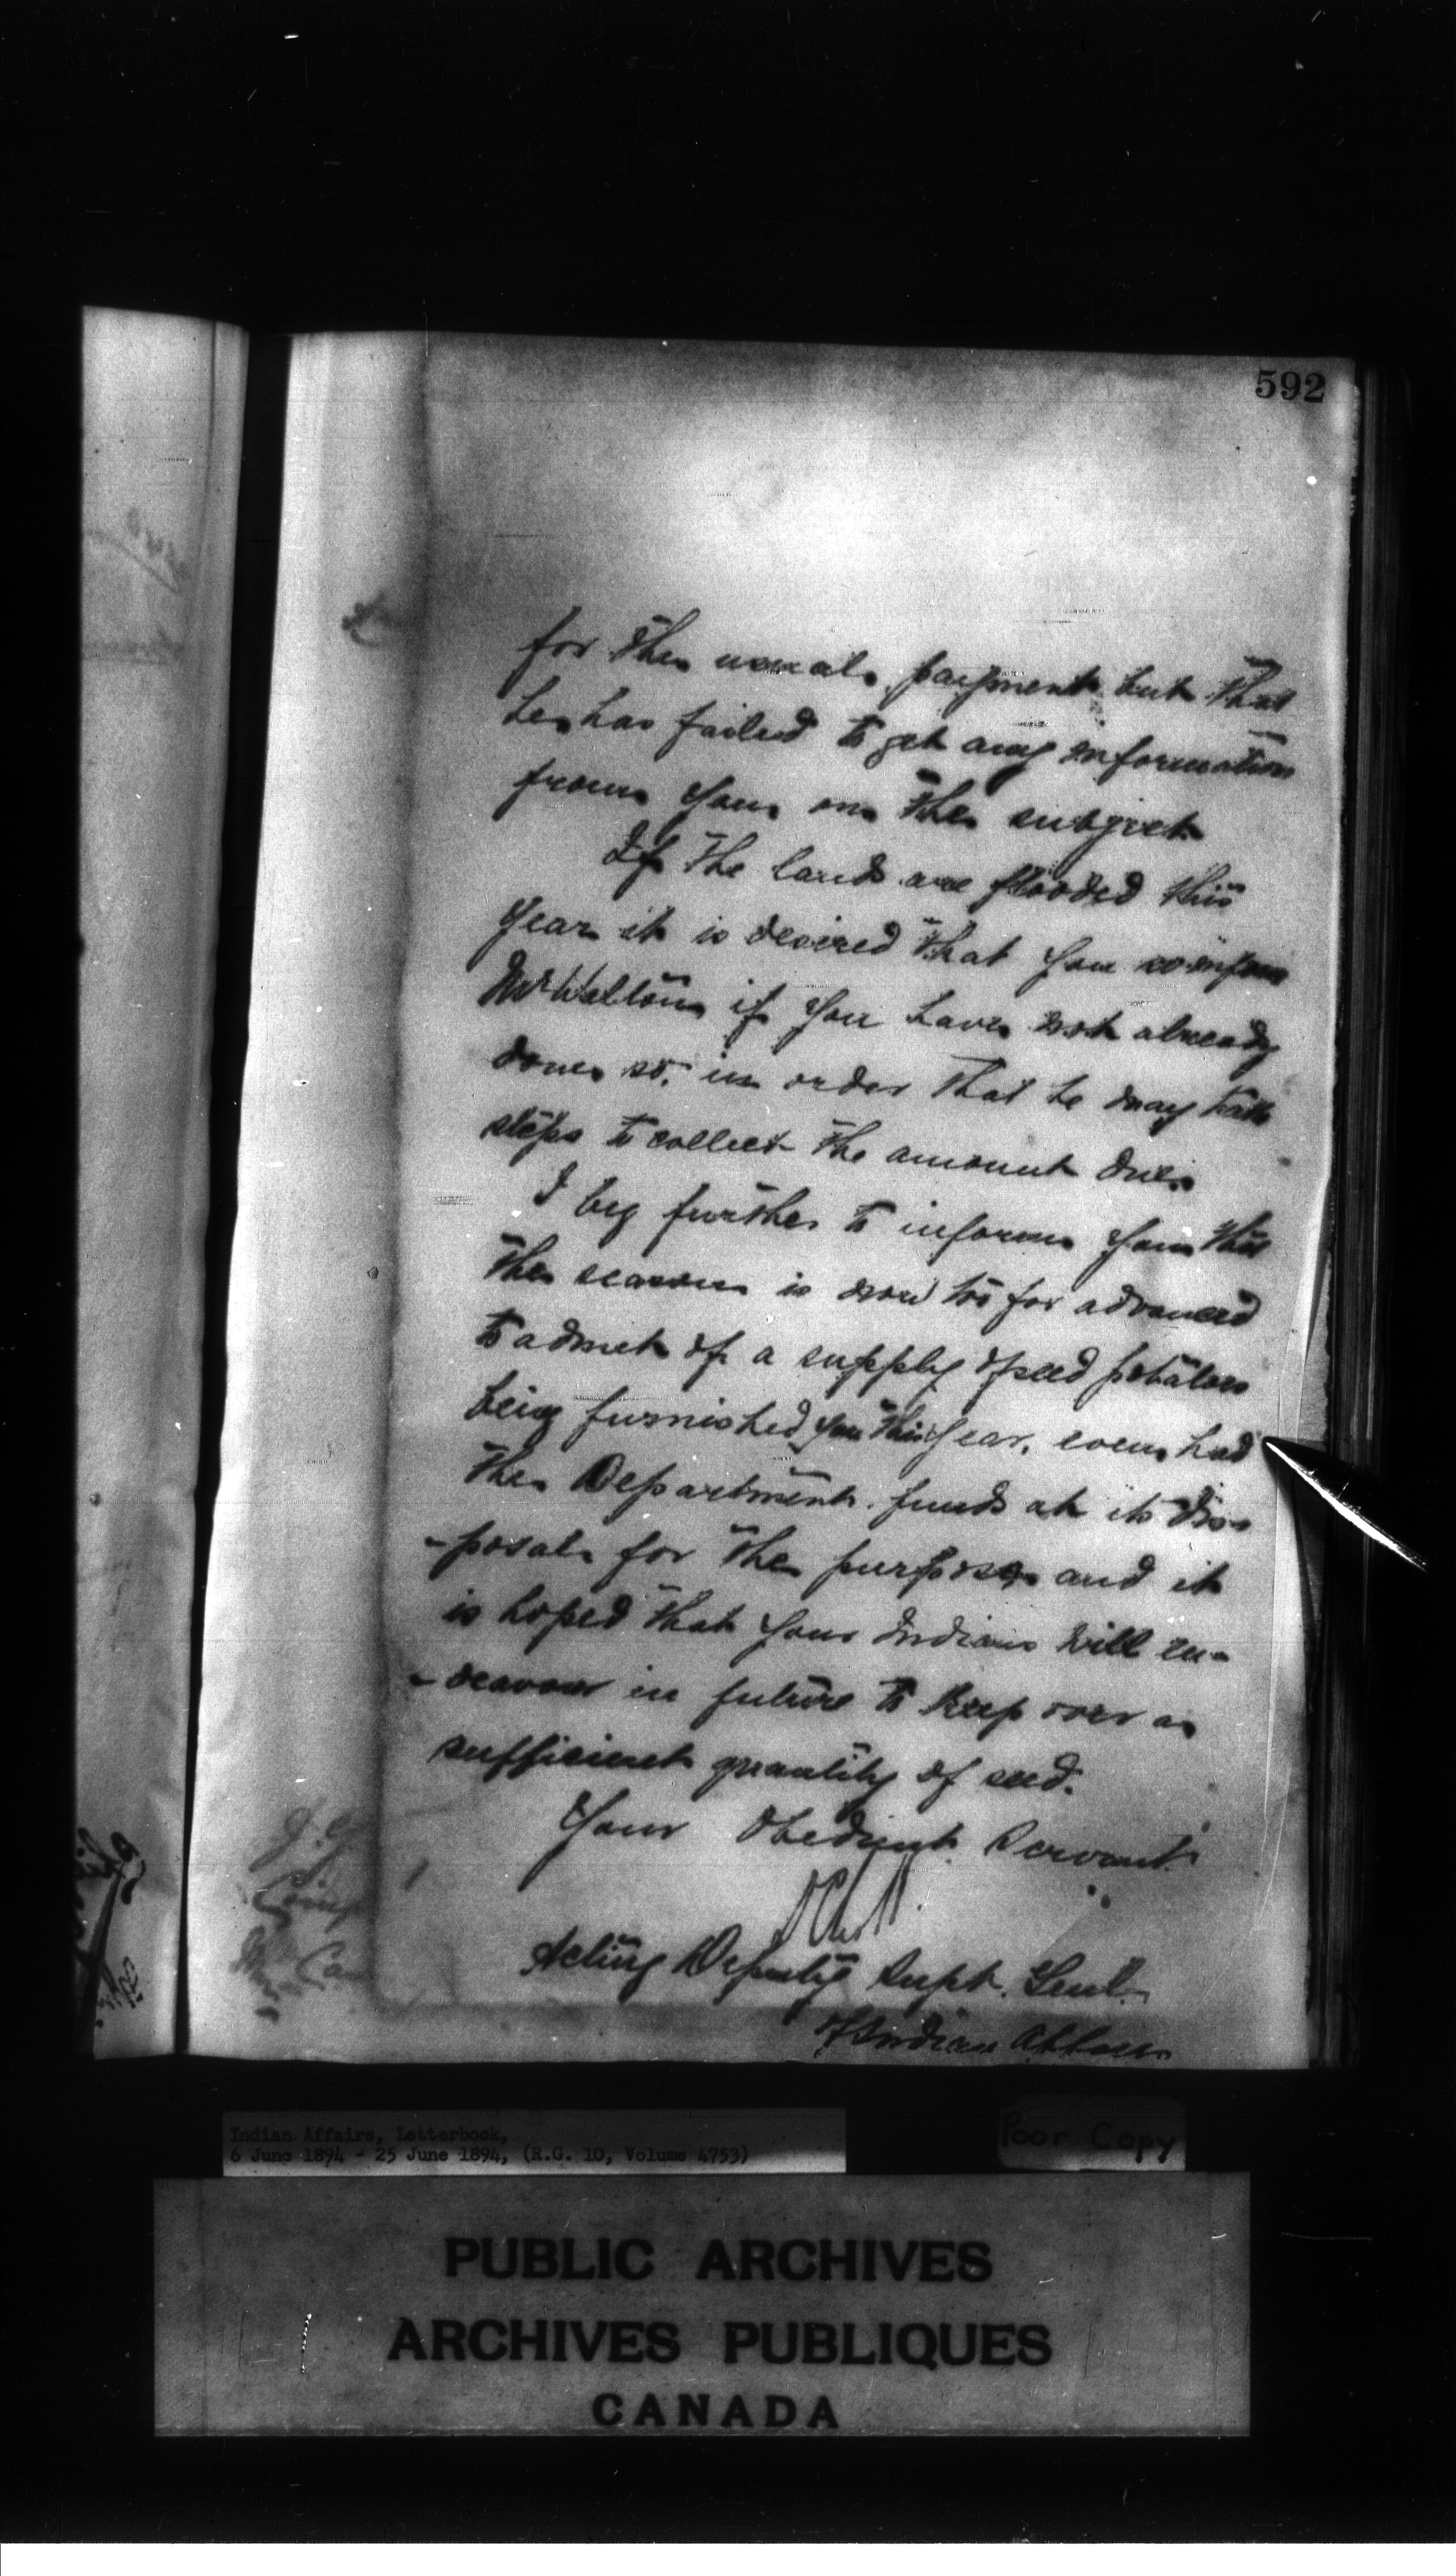 592
for the usual payment but that
he has failed to get any information
from you on the subject
If the lands are flooded this
year it is desired that you so inform
Mr Walton if you have not already
done so, in order that he may take
steps to collect the amount due.
I beg further to inform you that
the season is now too far advanced
to admit of a supply of seed potatoes
being furnished you this year, even had
the Department funds at its dis-
-posal for the purpose and it
is hoped that your Indians will en-
-deavour in future to keep over a
sufficient quantity of seed.
Your Obedient Servant
Acting Deputy Supt. Genl.
of Indian Affairs
Indian Affairs, Letterbook,
6 June 1894 - 25 June 1894, (R.G. 10, Volume 4753)
Poor Copy
PUBLIC ARCHIVES
ARCHIVES PUBLIQUES
CANADA